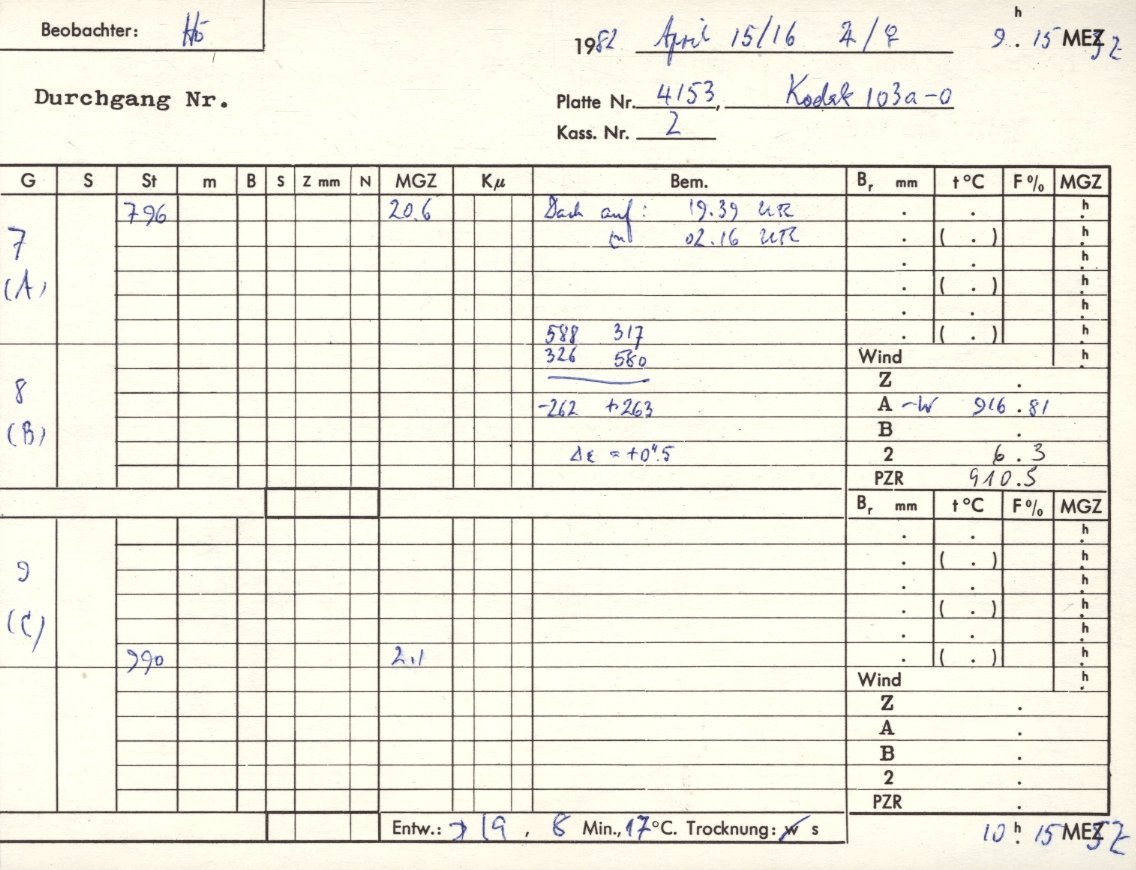 Beobachter: Hö
1982 April 15/16 ♃/♀ 9h. 15 MEZ SZ
Durchgang Nr.
Platte Nr. 4153, Kodak 103a-O
Kass. Nr. 2
G S St m B S Z mm N MGZ Kμ Bem. Br mm t °C F % MGZ
796 20.6 Dach auf: 19.39 UTC . . h.
7 zu 02.16 UTC . ( . ) h.
. . h.
(A) . ( . ) h.
. . h.
588 317 . ( . ) h.
326 580 Wind h.
8 Z .
-262 +263 A ~W 916.81
(B) B .
Δε = +0".5 2 6.3
PZR 910.5
Br mm t °C F % MGZ
. . h.
9 . ( . ) h.
. . h.
(C) . ( . ) h.
. . h.
990 2.1 . ( . ) h.
Wind h.
Z .
A .
B .
2 .
PZR .
Entw.: 19, 8 Min., 17 °C. Trocknung: w s
10h. 15 MEZ SZ